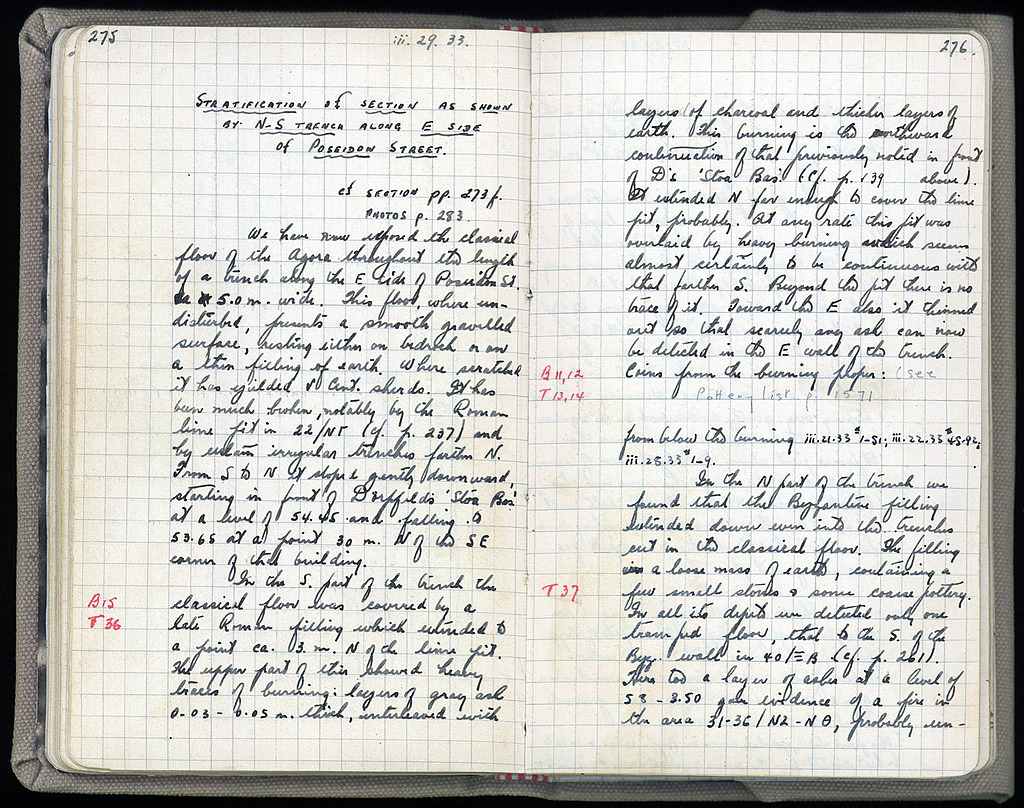 275
iii. 29. 33.
STRATIFICATION of SECTION AS SHOWN
BY N-S TRENCH ALONG E SIDE
of POSEIDON STREET.
cf SECTION pp. 273f.
PHOTOS p. 283
We have now exposed the classical
floor of the Agora throughout the length
of a trench along the E side of Poseidon St.
ca 5.0 m. wide. This floor, where un-
disturbed, presents a smooth gravelled
surface, resting either on bedrock or on
a thin filling of earth. Where scratched
it has yielded V Cent. sherds. It has
been much broken, notably by the Roman
lime pit in 22/ΝΓ (cf. p. 237) and
by certain irregular trenches farther N.
From S to N it slopes gently downward,
starting in front of Dörpfeld's 'Stoa Bas'
at a level of 54.45 and falling to
53.65 at a point 30 m. N of the SE
corner of that building.
In the S. part of the trench the
B15
classical floor was covered by a
T 36
late Roman filling which extended to
a point ca. 3. m. N of the lime pit.
The upper part of this showed heavy
traces of burning: layers of gray ash
0.03 - 0.05 m. thick, interleaved with
276.
layers of charcoal and thicker layers of
earth. This burning is the northward
continuation of that previously noted in front
of D's 'Stoa Bas.' (cf. p. 139 above).
It extended N far enough to cover the lime
pit, probably. At any rate this pit was
overlaid by heavy burning which seems
almost certainly to be continuous with
that farther S. Beyond the pit there is no
trace of it. Toward the E also it thinned
out so that scarcely any ash can now
be detected in the E wall of the trench.
B 11, 12
Coins from the burning proper: (see
T 13, 14
Pottery list p. 1571
from below the burning iii.21.33 #1-51; iii.22.33 #45-92;
iii.28.33 #1-9.
In the N part of the trench we
found that the Byzantine filling
extended down even into the trenches
cut in the classical floor. The filling
T 37
was a loose mass of earth, containing a
few small stones & some coarse pottery.
In all its depth we detected only one
tramped floor, that to the S. of the
Byz. wall in 40/ΞΒ (cf. p. 261).
Here too a layer of ashes at a level of
53 - 3.50 gave evidence of a fire in
the area 31-36/ΝΖ-ΝΘ, probably un-